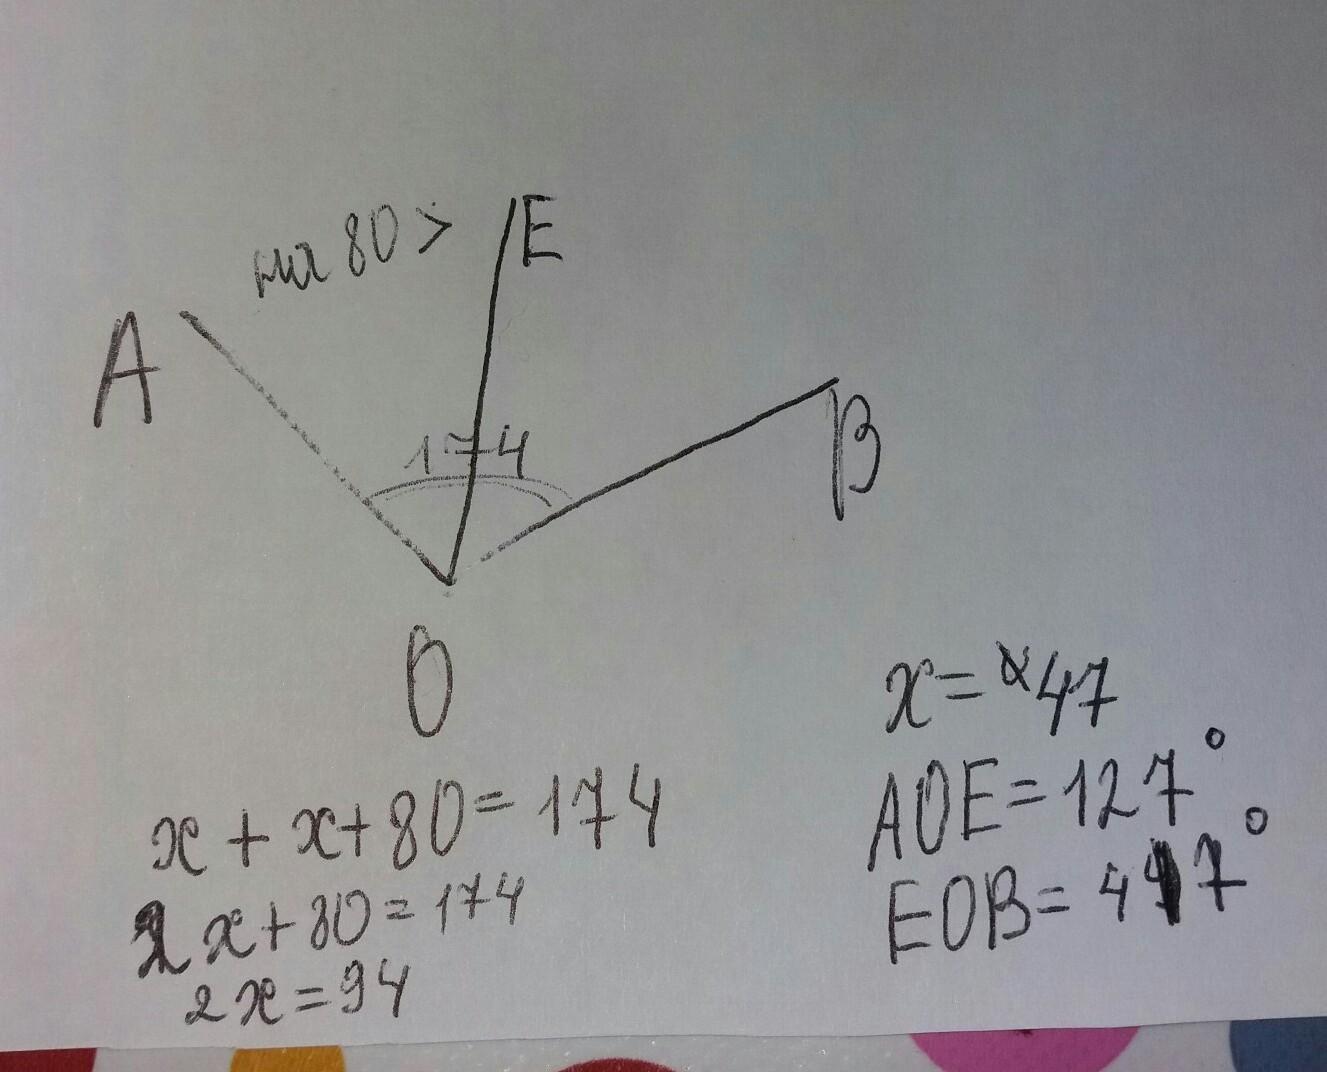 на 80 >
E
A
174
B
O
x + x + 80 = 174
2x + 80 = 174
2x = 94
x = 47
AOE = 127°
EOB = 47°